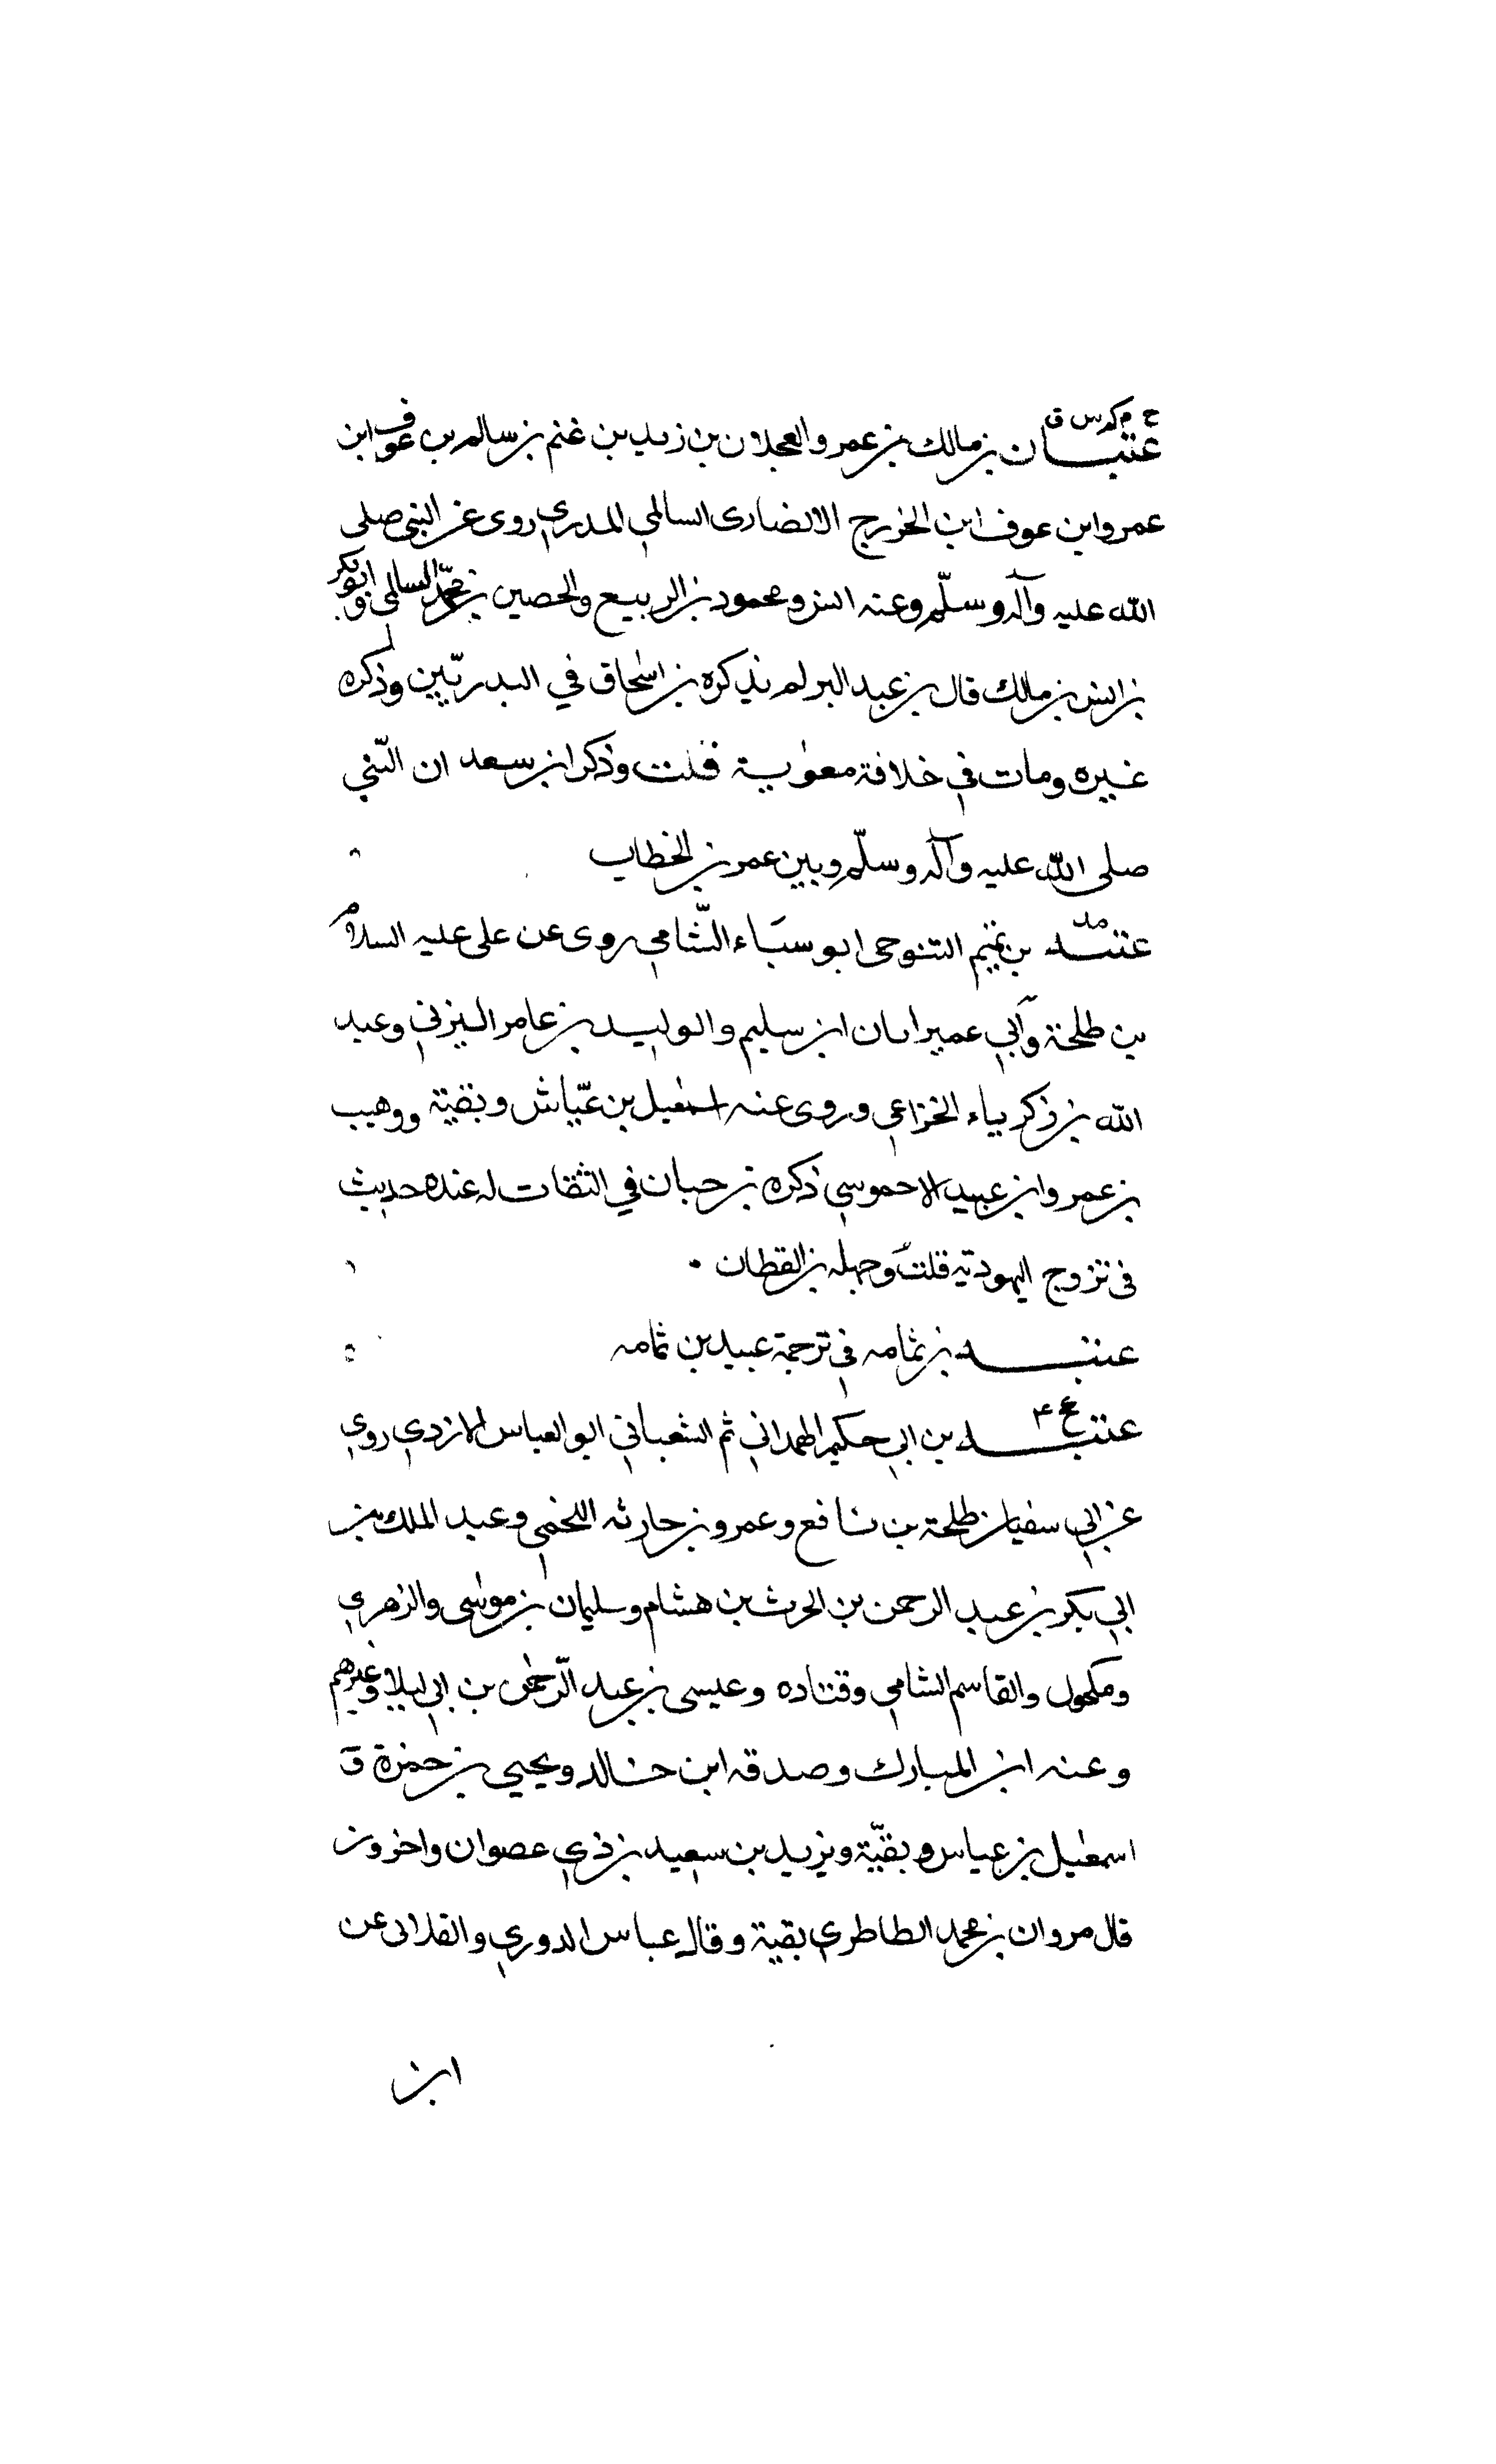 خ م كد س ق
عتبان بن مالك بن عمرو العجلان بن زيد بن غنم بن سالم بن عوف ابن
عمرو ابن عوف ابن الخزرج الانصارى السالمي البدري روى عن النبي صلى
الله عليه وآله وسلّم وعنه انس ومحمود بن الربيع والحصين بن محمّد السالمي وابو بكر
بن انس بن مالك قال بن عبد البر لم يذكره بن اسحاق في البدريّين وذكره
غيره ومات في خلافة معوية قلت وذكر ابن سعد ان النّبي
صلى اللّه عليه وآله وسلّم وبين عمر بن الخطاب
مد
عتبة بن تميم التنوحى ابو سبَاء الشّامي روى عن على عليه السلام
بن طلحة وأبي عمير ابان ابن سليم والوليد بن عامر اليزني وعبد
الله بن زكرياء الخزاعي وروى عنه اسمعيل بن عيّاش وبقية ووهيب
بن عمرو ابن عبيد الاحموسي ذكره بن حبان في الثقات له عنده حديث
فى تزوج اليهوديه قلت وجهله بن القطان
عتبه بن ثمامه في ترجمة عبيد بن ثمامه
عخ ۴
عتبه بن ابي حكيم الهمداني ثم الشعباني ابو العباس الازدي روى
عن ابي سفيان طلحة بن نافع وعمرو بن حارثه اللخمي وعبد الملك بن
ابي بكر بن عبد الرحمن بن الحرث بن هشام وسليمان بن موسى والزهري
ومكحول والقاسم الشامي وقتاده وعيسى بن عبد الرّحمن بن ابي ليلا وغيرهم
وعنه ابن المبارك وصدقه ابن خالد ويحيي بن حمزة و
اسمعيل بن عياس وبقيّة ويزيد بن سعيد بن ذي عصوان واخرون
قال مروان بن محمد الطاطري بقية وقال عباس الدوري والقلابى عن
ابن